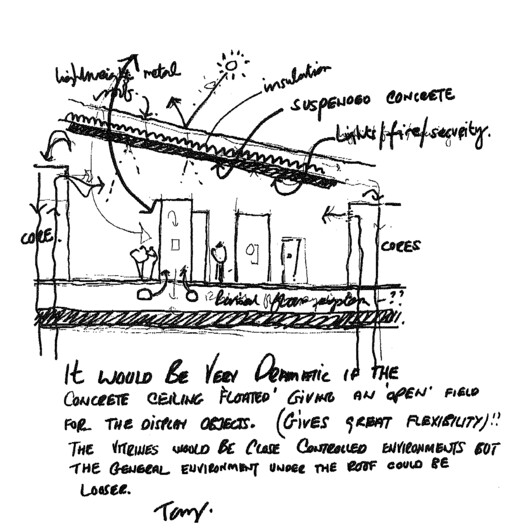 lightweight metal
roof
insulation
SUSPENDED CONCRETE
Lights/fire/security.
CORE.
CORES
??
IT WOULD BE VERY DRAMATIC IF THE
CONCRETE CEILING 'FLOATED' GIVING AN 'OPEN' FIELD
FOR THE DISPLAY OBJECTS. (GIVES GREAT FLEXIBILITY)!!
THE VITRINES WOULD BE CLOSE CONTROLLED ENVIRONMENTS BUT
THE GENERAL ENVIRONMENT UNDER THE ROOF COULD BE
LOOSER.
Tony.